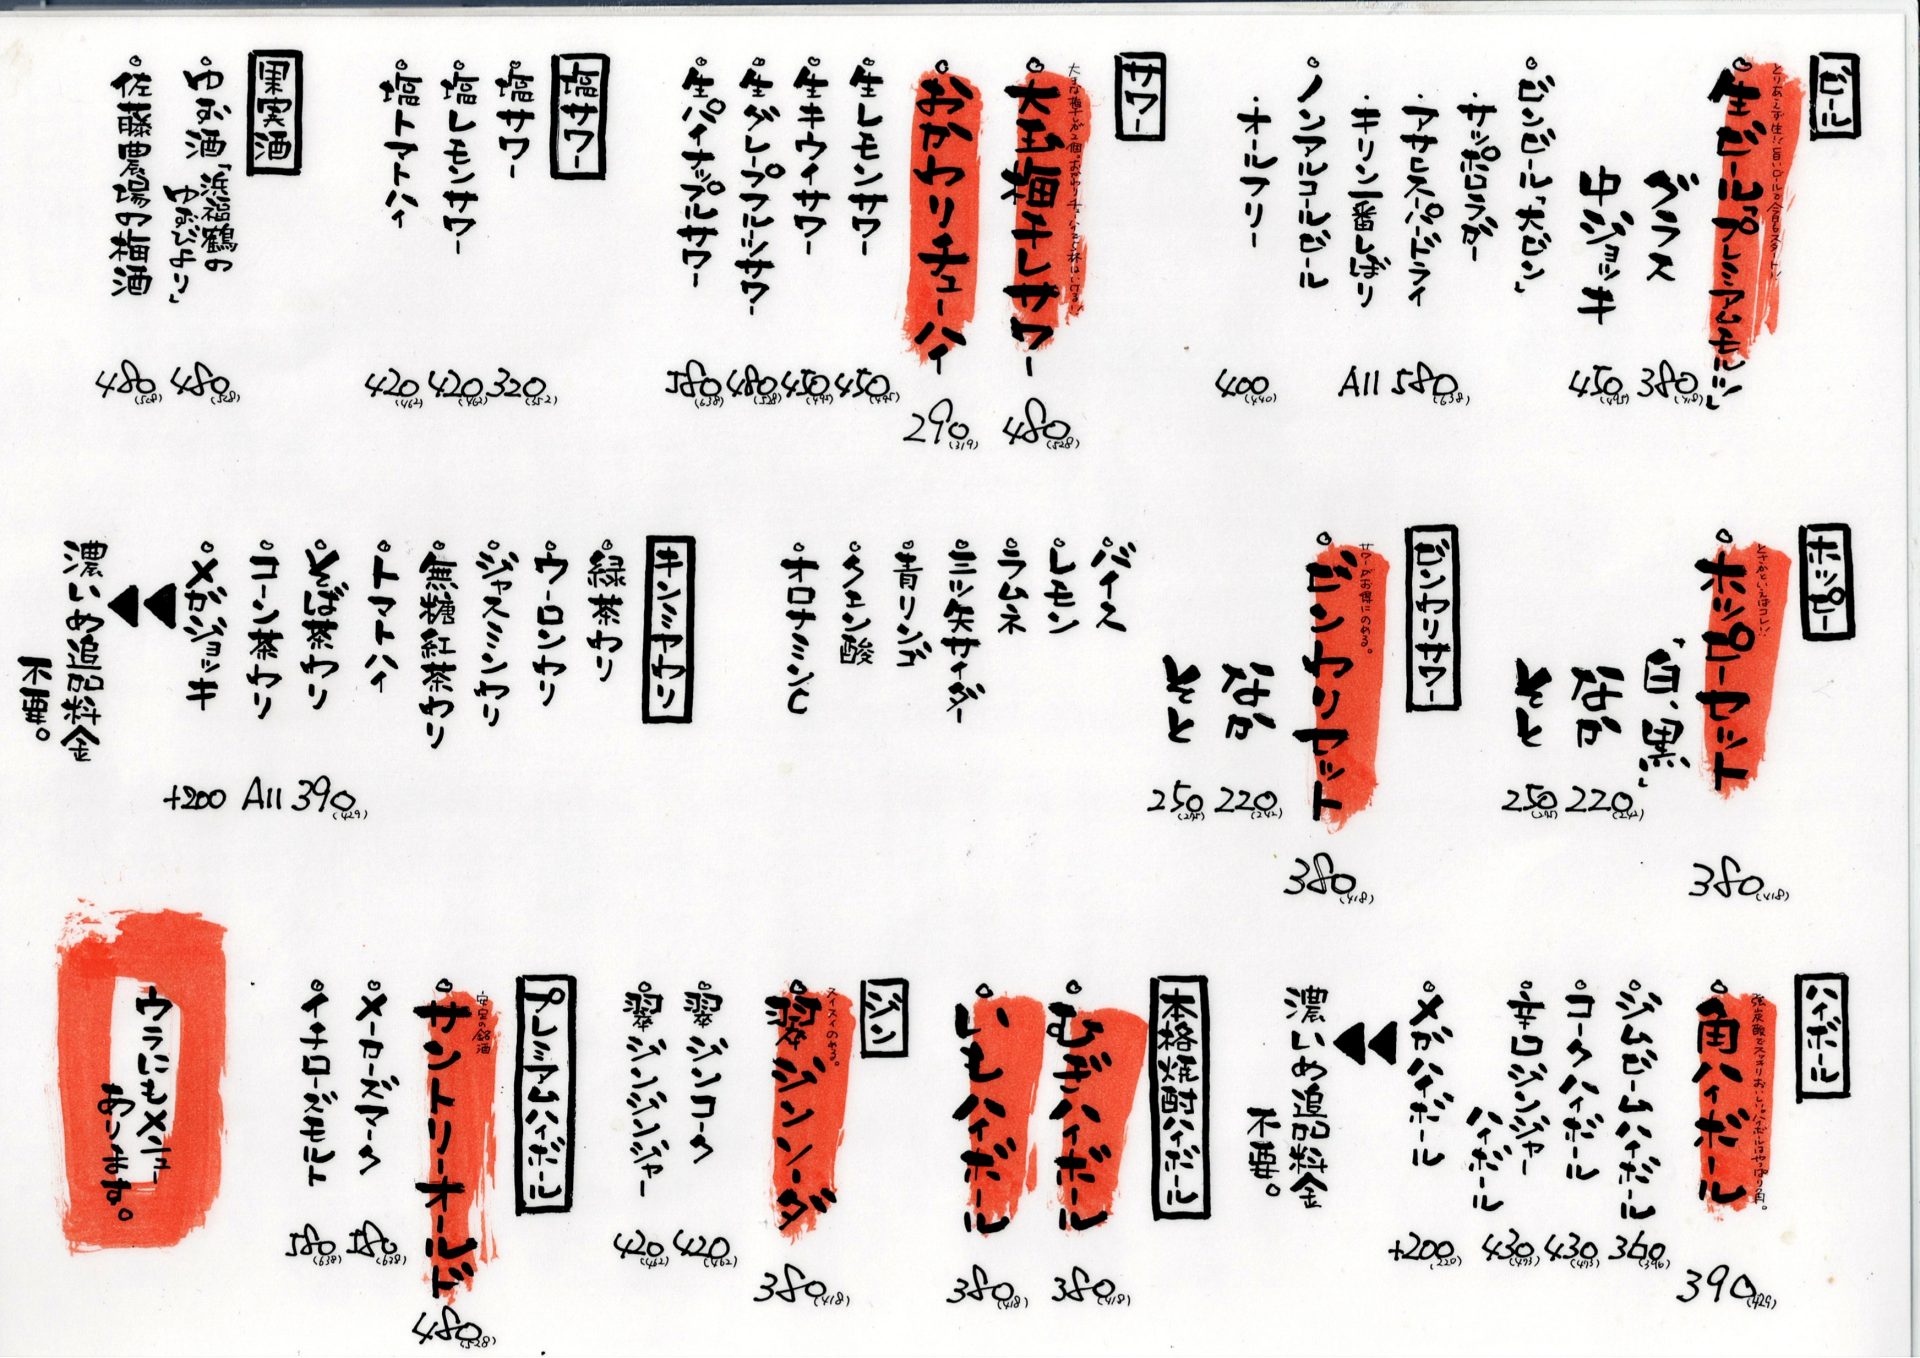 ビール
とりあえず生!!旨いビールで今日もスタート!!
生ビール「プレミアムモルツ」
グラス 380(418)
中ジョッキ 450(495)
ビンビール「大ビン」
・サッポロラガー
・アサヒスーパードライ
・キリン一番しぼり
All 580(638)
ノンアルコールビール
・オールフリー 400(440)
サワー
大玉梅干しサワー 480(528)
おかわりチューハイ 290(319)
生レモンサワー 450(495)
生キウイサワー 450(495)
生グレープフルーツサワー 480(528)
生パイナップルサワー 580(638)
塩サワー
塩サワー 320(352)
塩レモンサワー 420(462)
塩トマトハイ 420(462)
果実酒
ゆず酒「浜福鶴の
ゆずびより」 480(528)
佐藤農場の梅酒 480(528)
ホッピー
ホッピーセット 380(418)
「白、黒」
なか 220(242)
そと 250(275)
ビンワリサワー
ビンワリセット 380(418)
なか 220(242)
そと 250(275)
バイス
レモン
ラムネ
三ツ矢サイダー
青リンゴ
クエン酸
オロナミンC
キンミヤワリ
緑茶ワリ
ウーロンワリ
ジャスミンワリ
無糖紅茶ワリ
トマトハイ
そば茶ワリ
コーン茶ワリ
All 390(429)
メガジョッキ +200
濃いめ追加料金
不要。
ハイボール
強炭酸でスッキリおいしい。ハイボールはやっぱり角。
角ハイボール 390(429)
ジムビームハイボール 360(396)
コークハイボール 430(473)
辛口ジンジャー
ハイボール 430(473)
メガハイボール +200(220)
濃いめ追加料金
不要。
本格焼酎ハイボール
むぎハイボール 380(418)
いもハイボール 380(418)
ジン
スイスイのめる。
翠ジンソーダ 380(418)
翠ジンコーク 420(462)
翠ジンジンジャー 420(462)
プレミアムハイボール
安定の銘酒
サントリーオールド 480(528)
メーカーズマーク 580(638)
イチローズモルト 580(638)
ウラにもメニュー
あります。